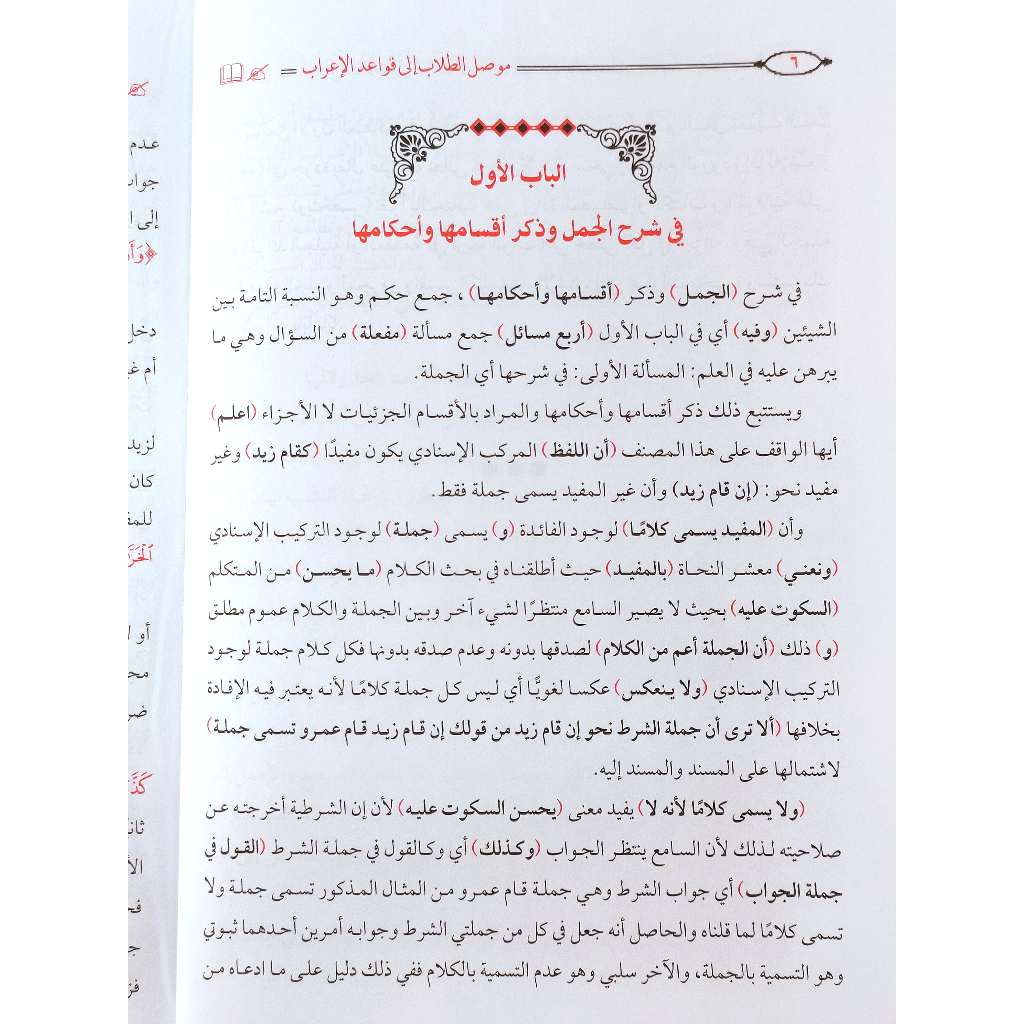 ٦
موصل الطلاب إلى قواعد الإعراب
الباب الأول
في شرح الجمل وذكر أقسامها وأحكامها
في شرح (الجمل) وذكر (أقسامها وأحكامها) ، جمع حكم وهو النسبة التامة بين
الشيئين (وفيه) أي في الباب الأول (أربع مسائل) جمع مسألة (مفعلة) من السؤال وهي ما
يبرهن عليه في العلم: المسألة الأولى: في شرحها أي الجملة.
ويستتبع ذلك ذكر أقسامها وأحكامها والمراد بالأقسام الجزئيات لا الأجزاء (اعلم)
أيها الواقف على هذا المصنف (أن اللفظ) المركب الإسنادي يكون مفيدًا (كقام زيد) وغير
مفيد نحو: (إن قام زيد) وأن غير المفيد يسمى جملة فقط.
وأن (المفيد يسمى كلامًا) لوجود الفائدة (و) يسمى (جملة) لوجود التركيب الإسنادي
(ونعني) معشر النحاة (بالمفيد) حيث أطلقناه في بحث الكلام (ما يحسن) من المتكلم
(السكوت عليه) بحيث لا يصير السامع منتظرًا لشيء آخر وبين الجملة والكلام عموم مطلق
(و) ذلك (أن الجملة أعم من الكلام) لصدقها بدونه وعدم صدقه بدونها فكل كلام جملة لوجود
التركيب الإسنادي (ولا ينعكس) عكسا لغويًّا أي ليس كل جملة كلامًا لأنه يعتبر فيه الإفادة
بخلافها (ألا ترى أن جملة الشرط نحو إن قام زيد من قولك إن قام زيد قام عمرو تسمى جملة)
لاشتمالها على المسند والمسند إليه.
(ولا يسمى كلامًا لأنه لا) يفيد معنى (يحسن السكوت عليه) لأن إن الشرطية أخرجته عن
صلاحيته لذلك لأن السامع ينتظر الجواب (وكذلك) أي وكالقول في جملة الشرط (القول في
جملة الجواب) أي جواب الشرط وهي جملة قام عمرو من المثال المذكور تسمى جملة ولا
تسمى كلامًا لما قلناه والحاصل أنه جعل في كل من جملتي الشرط وجوابه أمرين أحدهما ثبوتي
وهو التسمية بالجملة، والآخر سلبي وهو عدم التسمية بالكلام ففي ذلك دليل على ما ادعاه من
عدم
إلى
دخل
أم
لزيد
كان
أو